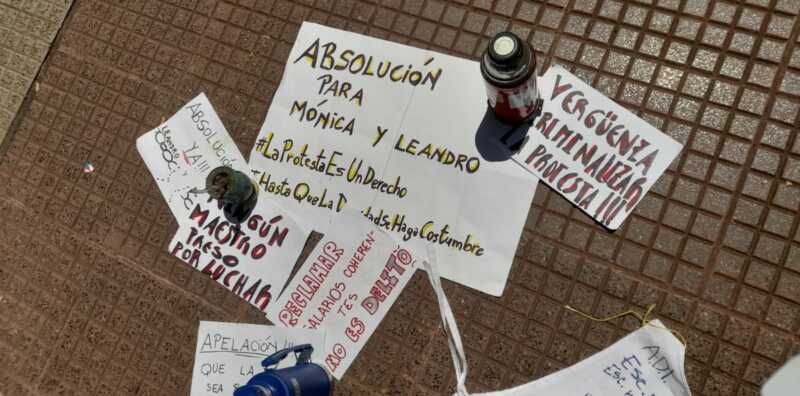 ABSOLUCIÓN
PARA
MÓNICA Y LEANDRO
#LaProtestaEsUnDerecho
#HastaQueLa DignidadSeHagaCostumbre
VERGÜENZA
CRIMINALIZAR
PROTESTA!!!
ABSOLUCIÓN
YA!!!
LEANDRO
NINGÚN
MAESTRO
PRESO
POR LUCHAR
RECLAMAR
SALARIOS COHEREN-
TES
NO ES DELITO
APELACIÓN!!!
QUE LA
SEA
A.D.I.
Esc.
Esc.